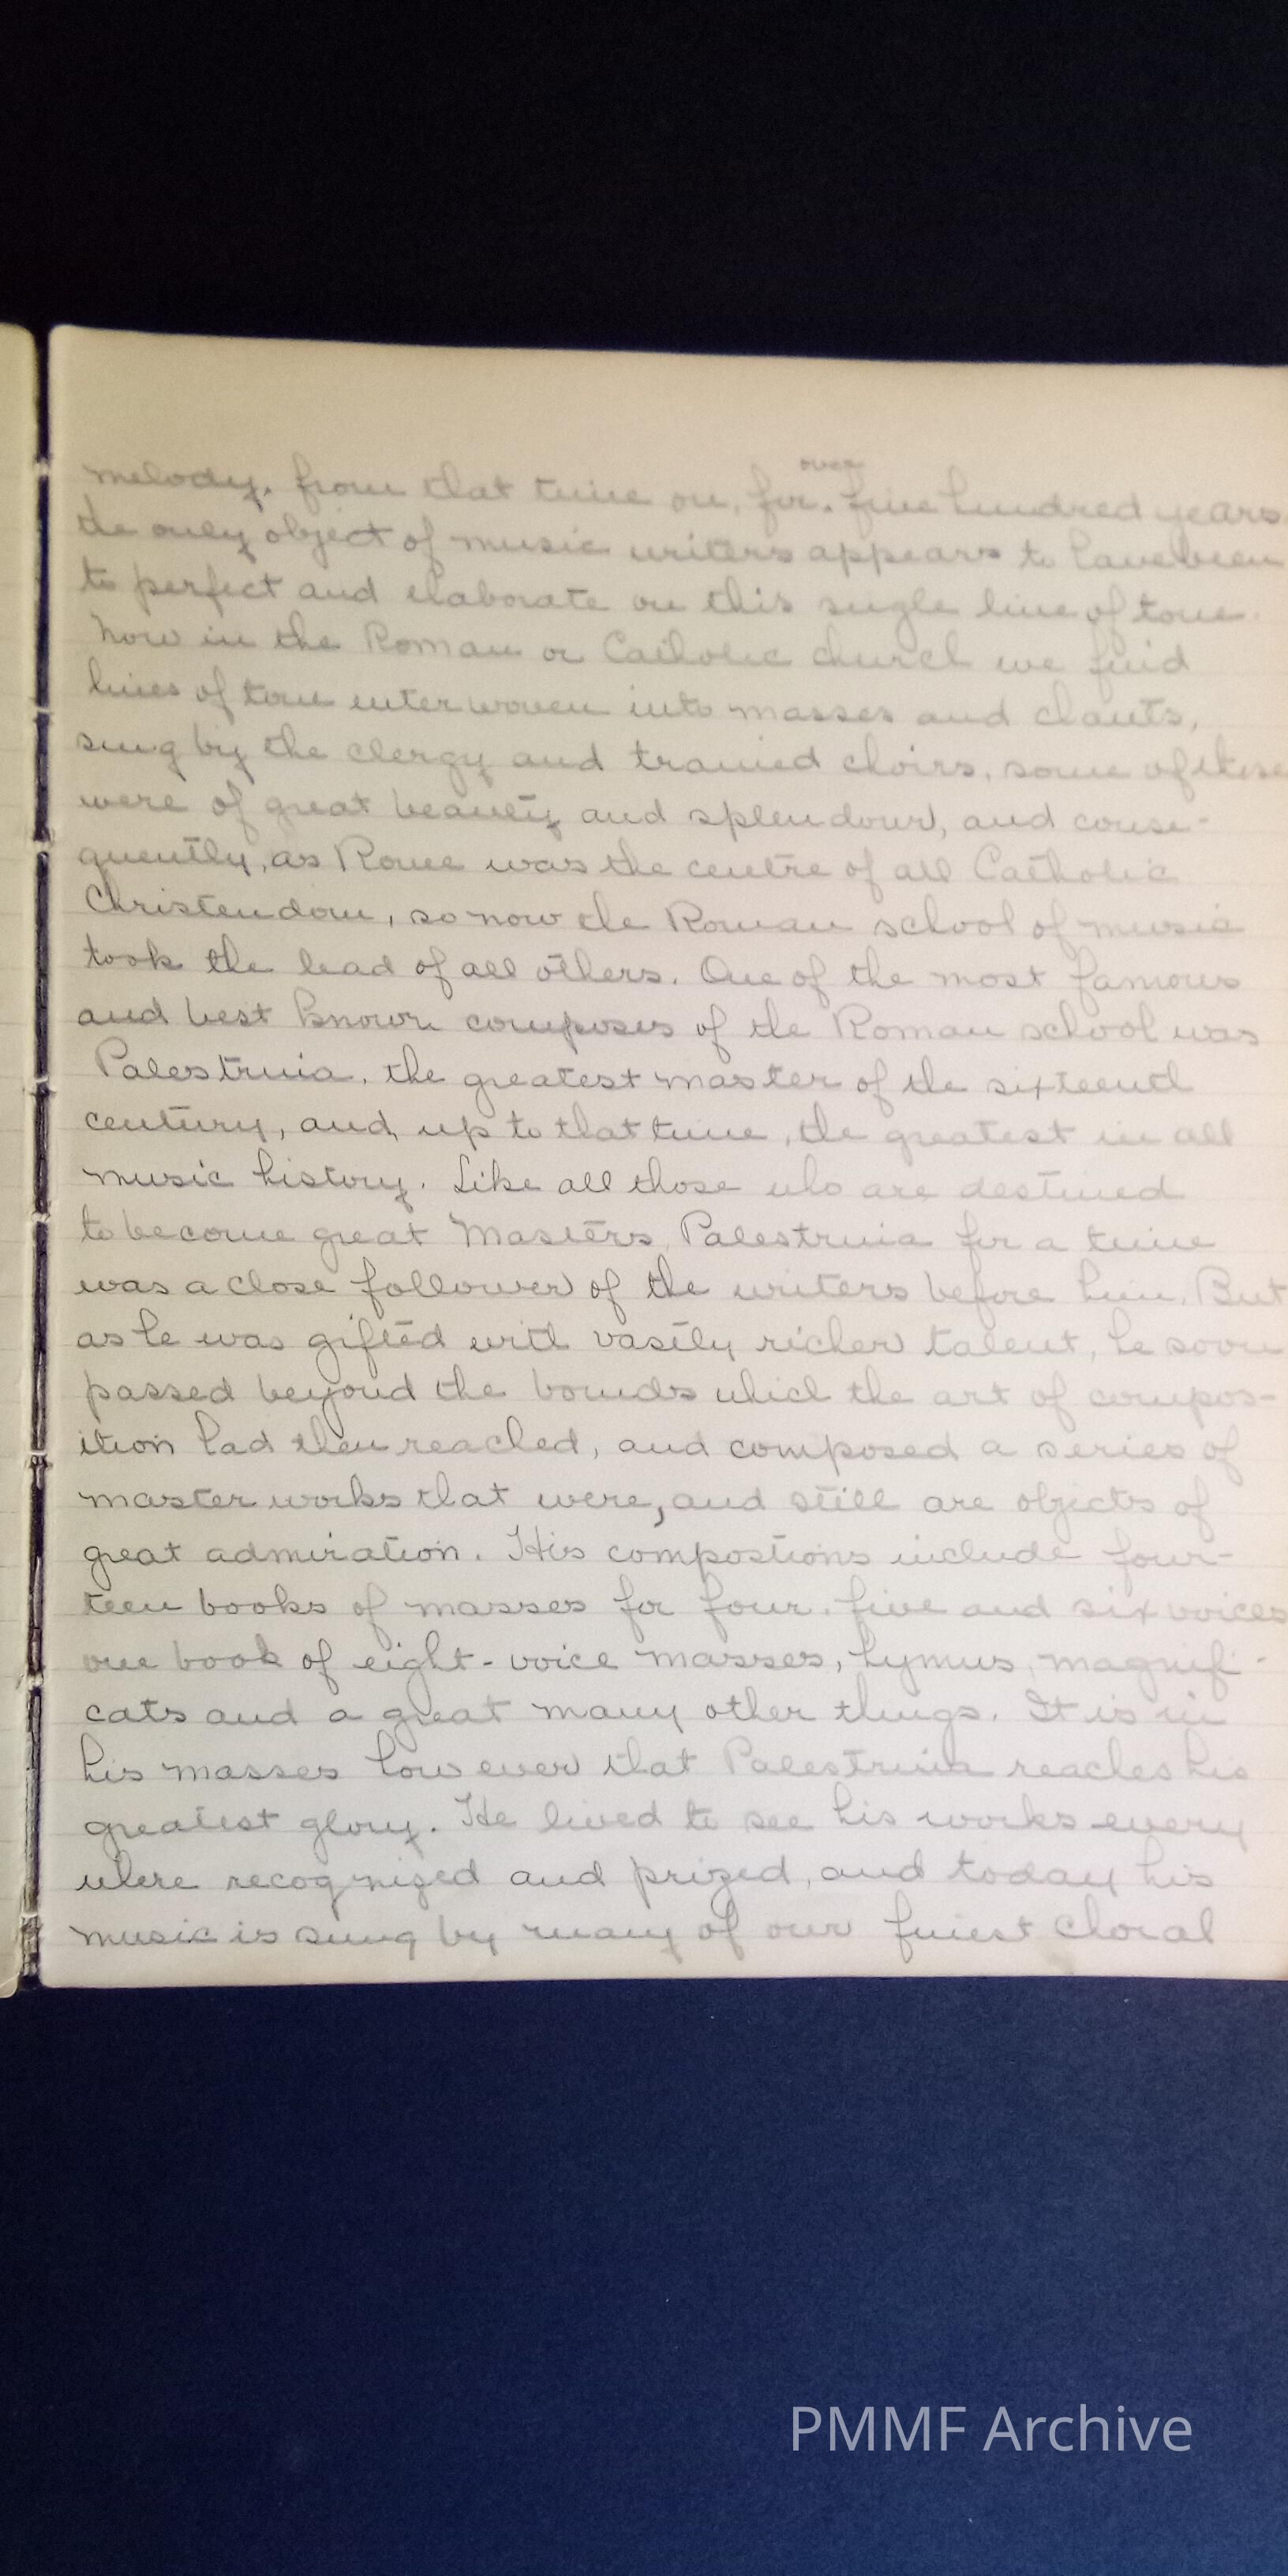 melody. from that time on, for over five hundred years
the only object of music writers appears to have been
to perfect and elaborate on this single line of tone.
Now in the Roman or Catholic church we find
lines of tone interwoven into masses and chants,
sung by the clergy and trained choirs, some of these
were of great beauty and splendour, and conse-
quently, as Rome was the centre of all Catholic
Christendom, so now the Roman school of music
took the lead of all others. One of the most famous
and best known composers of the Roman school was
Palestrina, the greatest master of the sixteenth
century, and, up to that time, the greatest in all
music history. Like all those who are destined
to become great Masters, Palestrina for a time
was a close follower of the writers before him. But
as he was gifted with vastly richer talent, he soon
passed beyond the bounds which the art of compos-
ition had then reached, and composed a series of
master works that were, and still are objects of
great admiration. His compostions include four-
teen books of masses for four, five and six voices
one book of eight-voice masses, hymns, magnifi-
cats and a great many other things. It is in
his masses however that Palestrina reaches his
greatest glory. He lived to see his works every
where recognized and prized, and today his
music is sung by many of our finest Choral
PMMF Archive